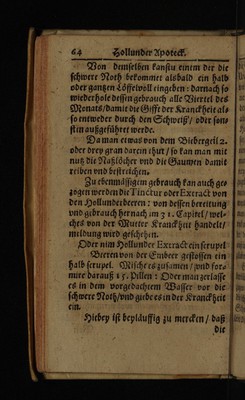 64 Hollunder Apoteck.
Von demselben kanstu einem der die
schwere Noth bekommet alsbald ein halb
oder gantzen Löffelvoll eingeben: darnach so
wiederhole dessen gebrauch alle Viertel des
Monats/damit die Gifft der Kranckheit als-
so entweder durch den Schweiß/ oder sons-
sten außgeführet werde.
Da man etwas von dem Biebergeil 2.
oder drey gran daren thut/ so kan man mit
nutz die Naßlöcher und die Gaumen damit
reiben und bestreichen.
Zu ebenmässigem gebrauch kan auch ge-
zogen werden die Tinctur oder Extract von
den Hollunderbeeren: von dessen bereitung
und gebrauch hernach im 31. Capitel/ wel-
ches von der Mutter Kranckheit handelt/
meldung wird geschehen.
Oder nim Hollunder Extract ein scrupel
Beeren von der Einbeer gestossen ein
halb scrupel. Mische es zusamen/ und for-
mire darauß 15. Pillen: Oder man zerlasse
es in dem vorgedachtem Wasser vor die
schwere Noth/und giebe es in der Kranckheit
ein.
Hiebey ist beyläuffig zu mercken/ daß
die